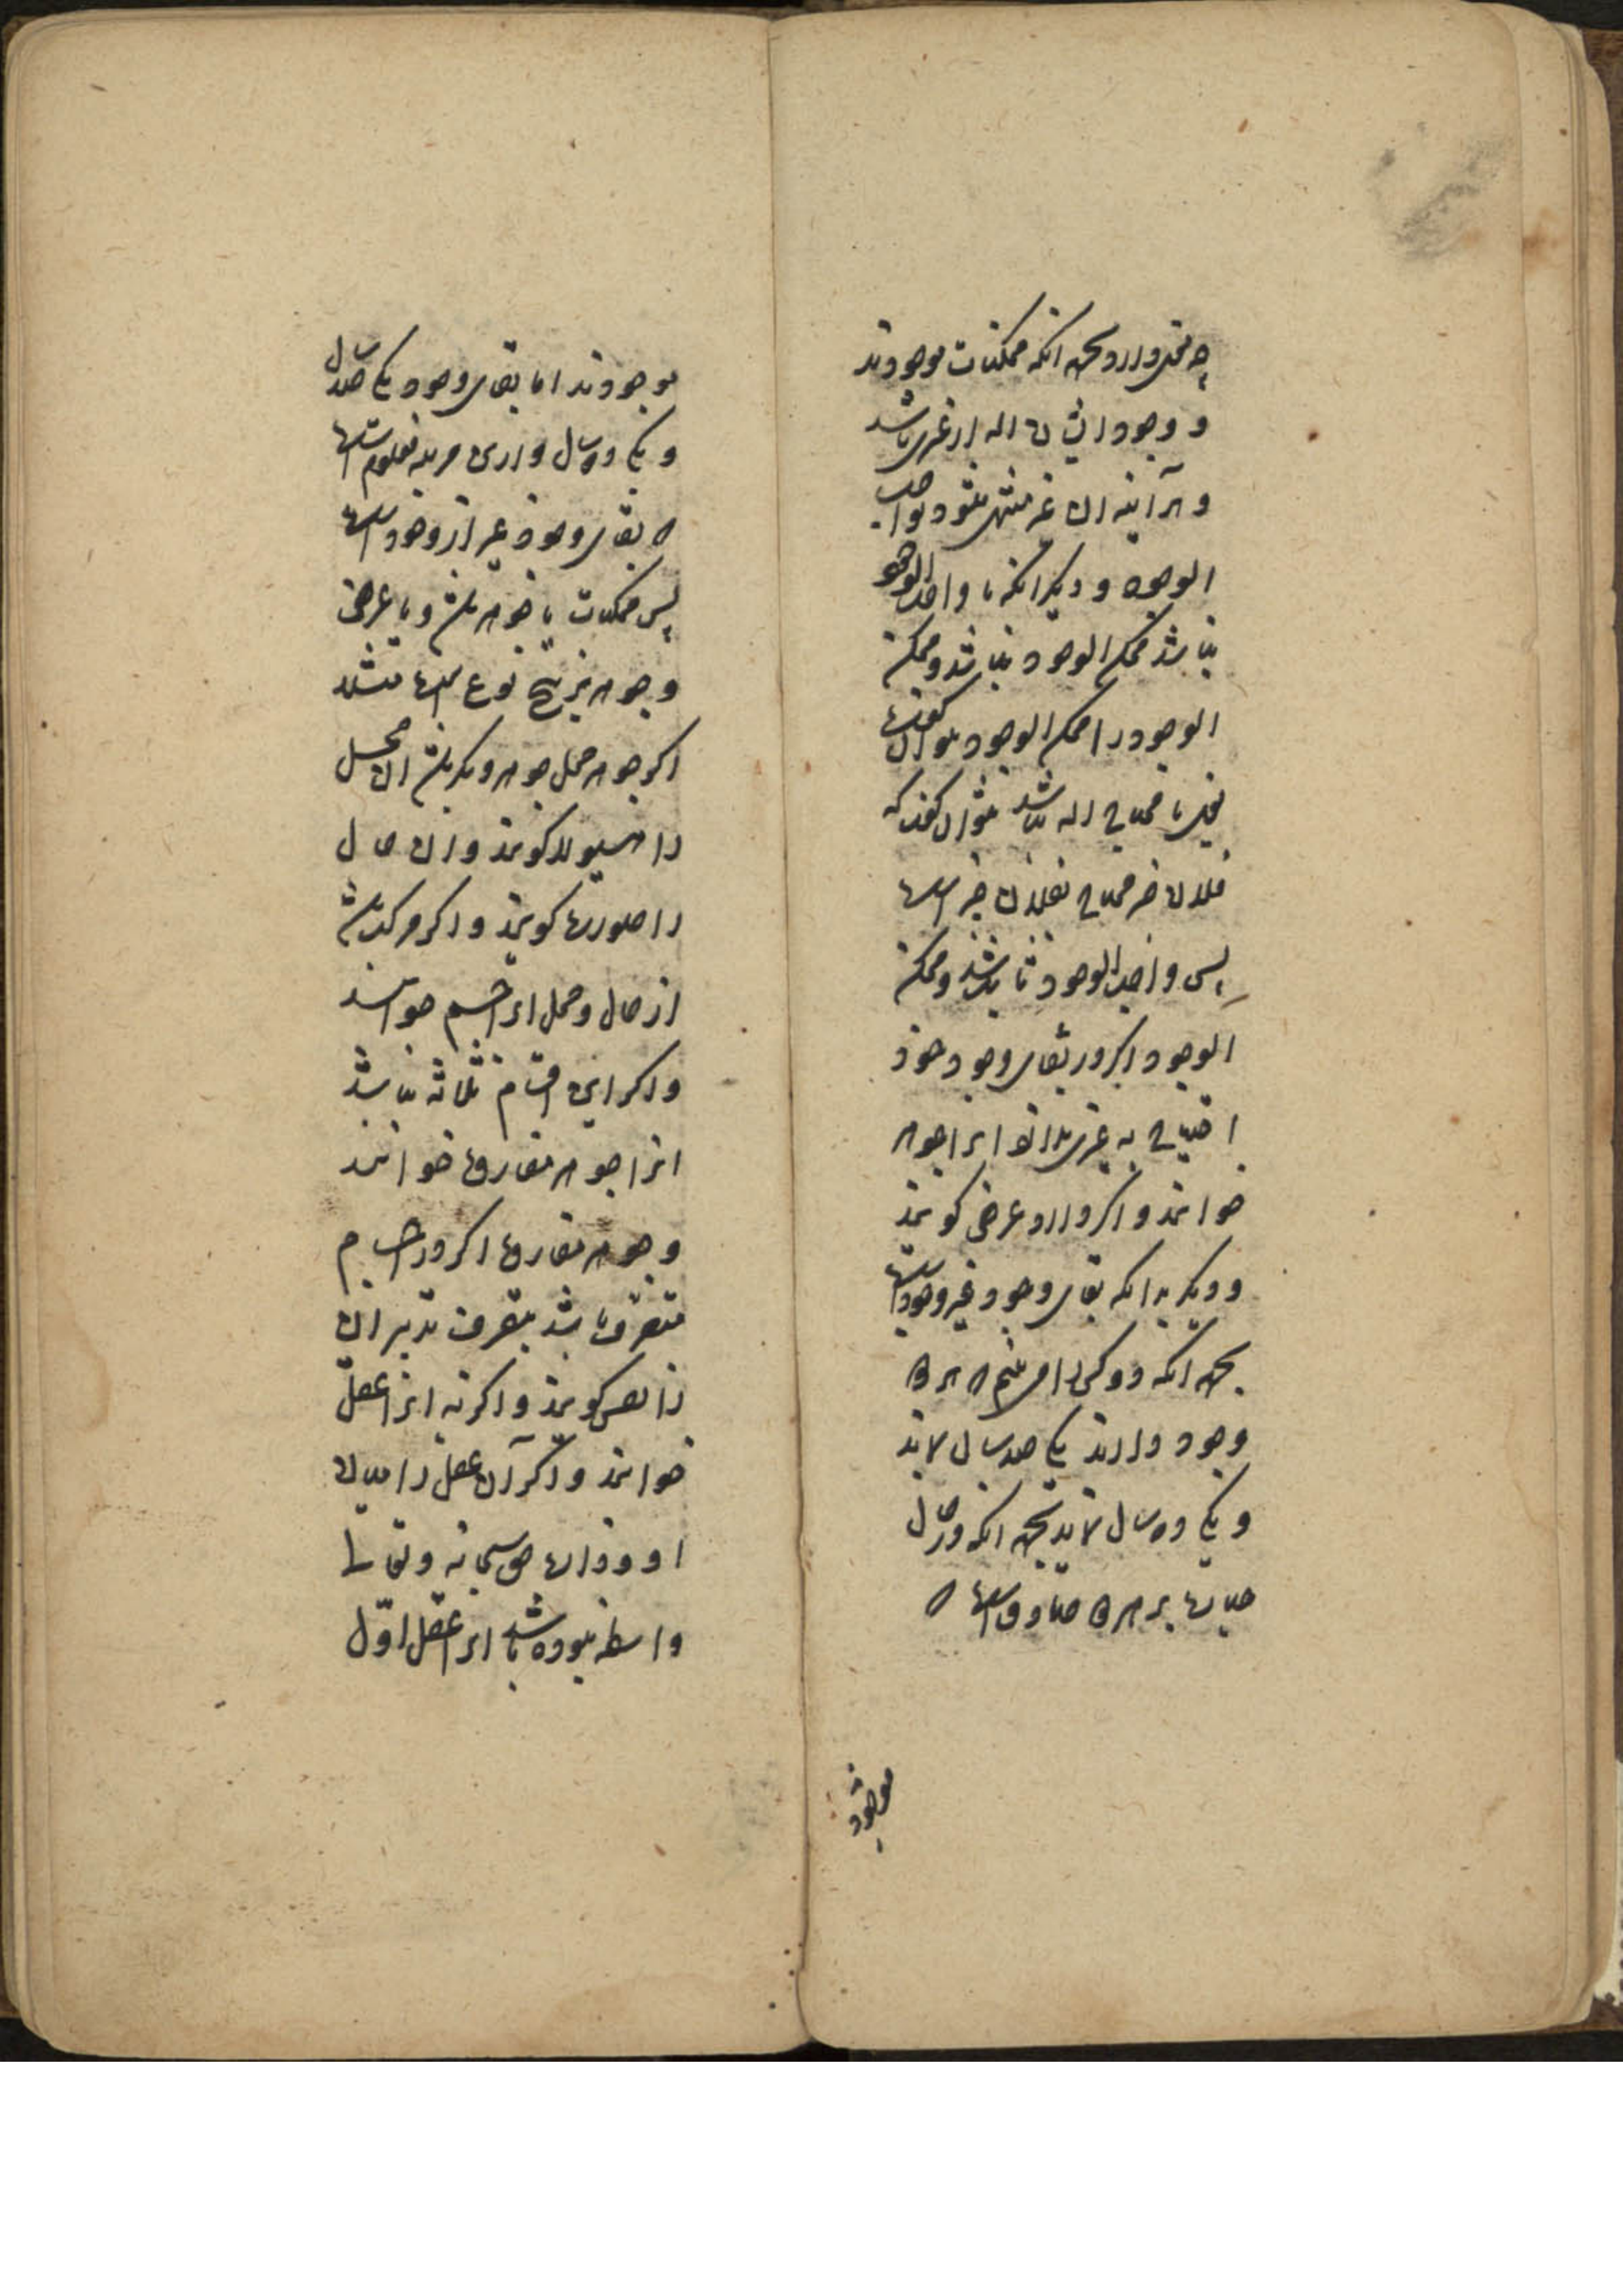 چه معنی دارد بجهة انکه ممکنات موجودند
و وجود ایشان البته از غیری باشد
و هر آینه ان غیر منتهی شود بواجب
الوجود و دیگر انکه تا واجب الوجود
نباشد ممکن الوجود نباشد و ممکن
الوجود را ممکن الوجود نتوان گفت
یعنی تا محتاج الیه نباشد نتوان گفت که
فلان خبر محتاج بفلان خبر است
پس واجب الوجود ثابت شد و ممکن
الوجود اکر در بقای وجود خود
احتیاج به غیری ندارد انرا جوهر
خوانند و اکر دارد عرض کویند
و دیکر بدانکه بقای وجود غیر وجود است
بجهة انکه دو کس را می بینم که هر دو
وجود دارند یکی صد سال ماند
و یکی ده سال ماند بجهة انکه در حال
حیات بر هر دو صادق است که
موجود
موجودند اما بقای وجود یکی صد سال
و یکی ده سال داری مرتبه معلوم است
که بقای وجود غیر از وجود است
پس ممکنات یا جوهر باشد و یا عرض
و جوهر بر پنج نوع است مثلا
اکر جوهر محل جوهر دیکر باشد ان محل
را هیولا کویند و ان حال
را صورت کویند و اکر مرکب باشد
از حال و محل انرا جسم خوانند
و اکر این اقسام ثلاثه نباشد
انرا جوهر مفارق خوانند
و جوهر مفارق اکر در اجسام
متصرف باشد بتصرف تدبیر ان
را نفس کویند و اکر نه انرا عقل
خوانند و اکر آن عقل را میان
او و ذات حق سبحانه و تعالی
واسطه نبوده باشد انرا عقل اوّل